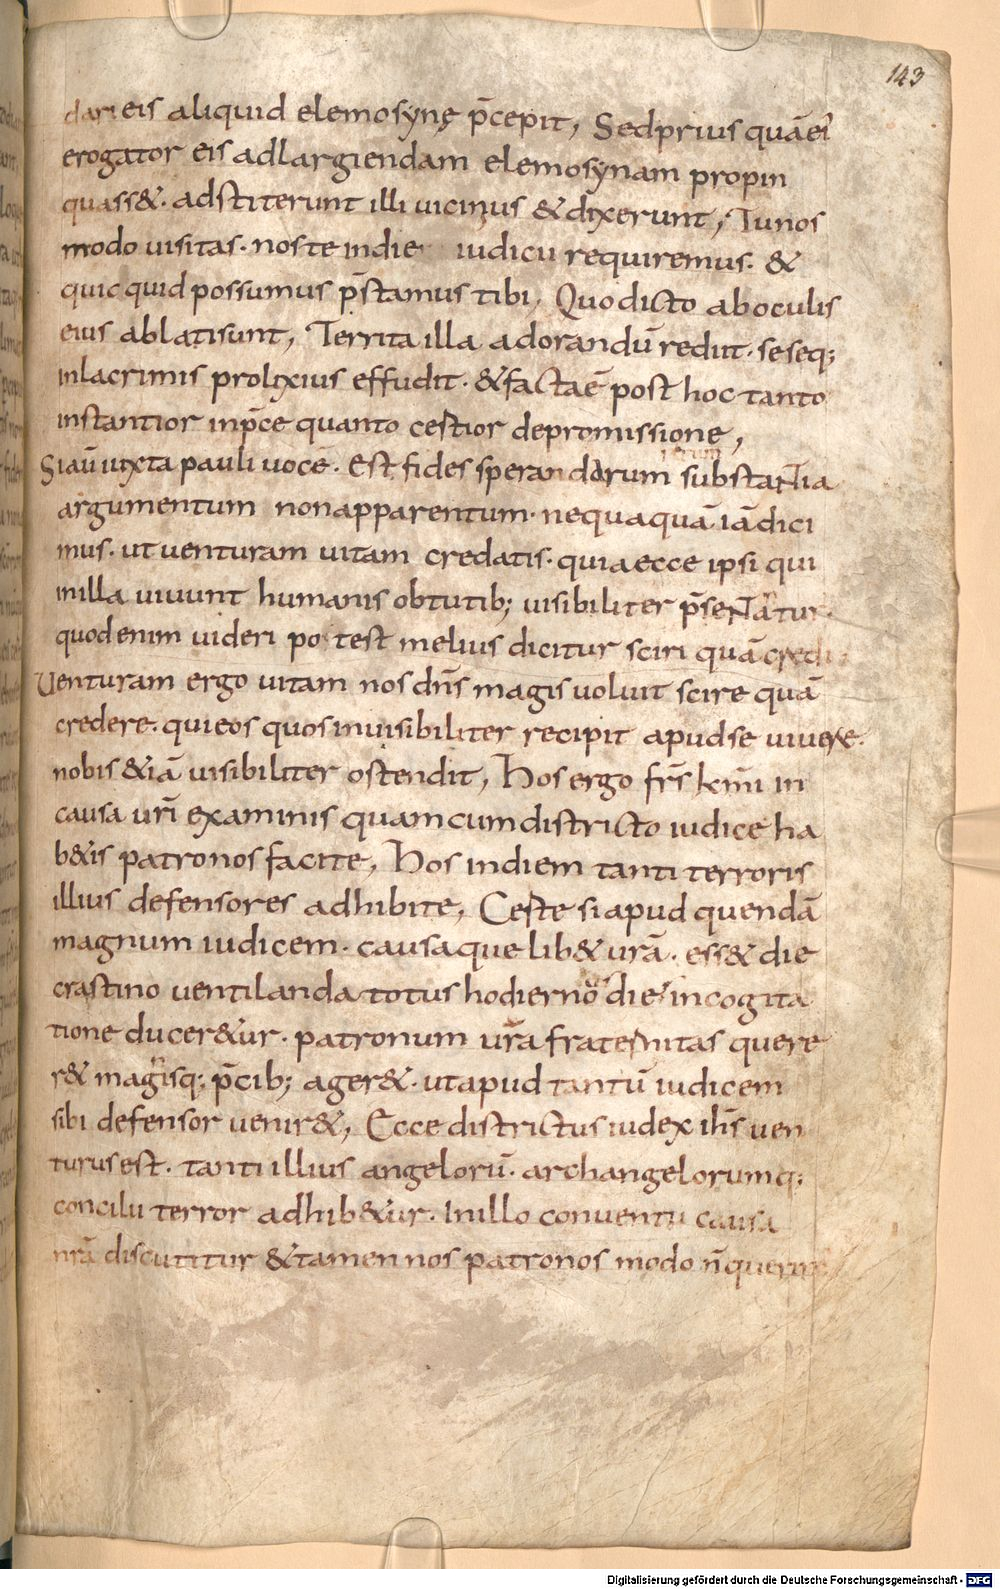 143
dari eis aliquid elemosynę p̄cepit, Sed prius quā ei
erogator eis ad largiendam elemosynam propin
quass&. adstiterunt illi uicinus & dixerunt, Tu nos
modo uisitas. nos te in die iudicii requiremus. &
quic quid possumus p̄stamus tibi, Quo dicto ab oculis
eius ablati sunt, Territa illa ad orandū rediit. se seq;
in lacrimis prolixius effudit. & facta ē post hoc tanto
instantior in p̄ce quanto certior de promissione,
Si aū iuxta pauli uocē. Est fides sperandarum substantia
argumentum non apparentum. nequaquā iā dici
mus. ut uenturam uitam credatis. quia ecce ipsi qui
in illa uiuunt humanis obtutib; uisibiliter p̄sentatur.
quod enim uideri potest melius dicitur sciri quā credi
Uenturam ergo uitam nos dn̄s magis uoluit scire quā
credere. qui eos quos inuisibiliter recipit apud se uiuere.
nobis &iā uisibiliter ostendit, Hos ergo fr̄s km̄i in
causa ur̄i examinis quam cum districto iudice ha
b&is patronos facite, Hos in diem tanti terroris
illius defensores adhibite, Certe si apud quendā
magnum iudicem. causa que lib& ur̄a. ess& die
crastino uentilanda totus hodierno die in cogita
tione ducer&ur. patronum ur̄a fraternitas quere
r& magisq; p̄cib; ager&. ut apud tantū iudicem
sibi defensor uenir&, Ecce districtus iudex ih̄s uen
turus est. tanti illius angelorū. archangelorumq;
concilii terror adhib&ur. In illo conuentu causa
nr̄a discutitur & tamen nos patronos modo n̄
Digitalisierung gefördert durch die Deutsche Forschungsgemeinschaft - DFG